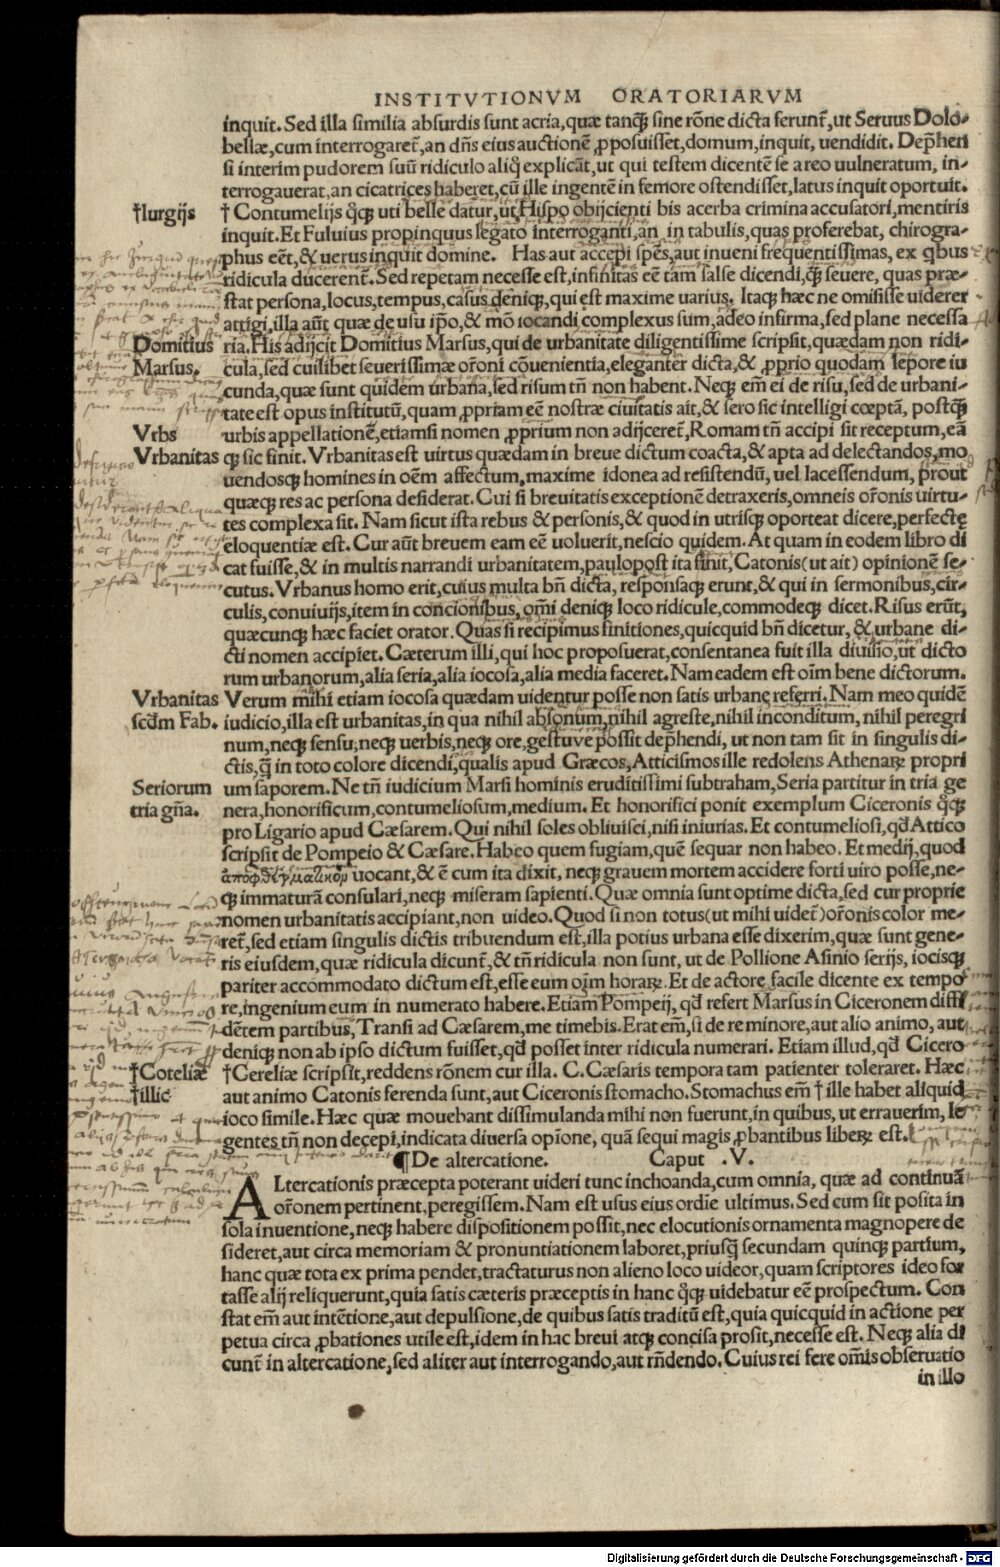 INSTITVTIONVM ORATORIARVM
inquit. Sed illa similia absurdis sunt acria, quæ tanq̃ sine rōne dicta ferunt̃, ut Seruus Dolo-
bellæ, cum interrogaret̃, an dñs eius auctionē ꝓposuisset, domum, inquit, uendidit. Dep̃hen
si interim pudorem suũ ridiculo aliq̃ explicãt, ut qui testem dicentē se a reo uulneratum, in-
terrogauerat, an cicatrices haberet, cũ ille ingentē in femore ostendisset, latus inquit oportuit.
†Iurgijs
† Contumelijs q̊q; uti belle datur, ut Hispo obijcienti bis acerba crimina accusatori, mentiris
inquit. Et Fuluius propinquus legato interroganti, an in tabulis, quas proferebat, chirogra-
phus eēt, & uerus inquit domine. Has aut accepi spēs, aut inueni frequentissimas, ex qbus
ridicula ducerent̃. Sed repetam necesse est, infinitas eē tam salse dicendi, q̃ seuere, quas præ-
stat persona, locus, tempus, casus deniq;, qui est maxime uarius. Itaq; hæc ne omisisse uiderer
attigi, illa aũt quæ de usu ip̃o, & mõ iocandi complexus sum, adeo infirma, sed plane necessa
Domitius
Marsus.
ria. His adijcit Domitius Marsus, qui de urbanitate diligentissime scripsit, quædam non ridi-
cula, sed cuilibet seuerissimæ or̃oni cõuenientia, eleganter dicta, & ꝓprio quodam lepore iu
cunda, quæ sunt quidem urbana, sed risum tñ non habent. Neq; em̃ ei de risu, sed de urbani-
tate est opus institutũ, quam ꝓpriam eē nostræ ciuitatis ait, & sero sic intelligi cœptã, postq̃
Vrbs
urbis appellationē, etiamsi nomen ꝓprium non adijceret̃, Romam tñ accipi sit receptum, eã
Vrbanitas
q; sic finit. Vrbanitas est uirtus quædam in breue dictum coacta, & apta ad delectandos, mo
uendosq; homines in oēm affectum, maxime idonea ad resistendũ, uel lacessendum, prout
quæq; res ac persona desiderat. Cui si breuitatis exceptionē detraxeris, omneis or̃onis uirtu-
tes complexa sit. Nam sicut ista rebus & personis, & quod in utrisq; oporteat dicere, perfectę
eloquentiæ est. Cur aũt breuem eam eē uoluerit, nescio quidem. At quam in eodem libro di
cat fuisse, & in multis narrandi urbanitatem, paulopost ita finit, Catonis (ut ait) opinionē se-
cutus. Vrbanus homo erit, cuius multa bñ dicta, responsaq; erunt, & qui in sermonibus, cir-
culis, conuiuijs, item in concionibus, om̃i deniq; loco ridicule, commodeq; dicet. Risus erũt,
quæcunq; hæc faciet orator. Quas si recipimus finitiones, quicquid bñ dicetur, & urbane di-
cti nomen accipiet. Cæterum illi, qui hoc proposuerat, consentanea fuit illa diuisio, ut dicto
rum urbanorum, alia seria, alia iocosa, alia media faceret. Nam eadem est oīm bene dictorum.
Vrbanitas
scd̃m Fab.
Verum mihi etiam iocosa quædam uidentur posse non satis urbane referri. Nam meo quidē
iudicio, illa est urbanitas, in qua nihil absonum, nihil agreste, nihil inconditum, nihil peregri
num, neq; sensu, neq; uerbis, neq; ore, gestuve possit dep̃hendi, ut non tam sit in singulis di-
ctis, q̃ in toto colore dicendi, qualis apud Græcos, Atticismos ille redolens Athenaꝝ propri
Seriorum
tria gña.
um saporem. Ne tñ iudicium Marsi hominis eruditissimi subtraham, Seria partitur in tria ge
nera, honorificum, contumeliosum, medium. Et honorifici ponit exemplum Ciceronis q̊q;
pro Ligario apud Cæsarem. Qui nihil soles obliuisci, nisi iniurias. Et contumeliosi, qd̃ Attico
scripsit de Pompeio & Cæsare. Habeo quem fugiam, quē sequar non habeo. Et medij, quod
ἀποφθεγματικὸν uocant, & ē cum ita dixit, neq; grauem mortem accidere forti uiro posse, ne-
q; immaturã consulari, neq; miseram sapienti. Quæ omnia sunt optime dicta, sed cur proprie
nomen urbanitatis accipiant, non uideo. Quod si non totus (ut mihi uidet̃) or̃onis color me-
ret̃, sed etiam singulis dictis tribuendum est, illa potius urbana esse dixerim, quæ sunt gene-
ris eiusdem, quæ ridicula dicunt̃, & tñ ridicula non sunt, ut de Pollione Asinio serijs, iocisq;
pariter accommodato dictum est, esse eum oīm horaꝝ. Et de actore facile dicente ex tempo
re, ingenium eum in numerato habere. Etiam Pompeij, qd̃ refert Marsus in Ciceronem diffi
dētem partibus, Transi ad Cæsarem, me timebis. Erat em̃, si de re minore, aut alio animo, aut
deniq; non ab ipso dictum fuisset, qd̃ posset inter ridicula numerari. Etiam illud, qd̃ Cicero
†Coteliæ
†illic
†Cereliæ scripsit, reddens rōnem cur illa. C. Cæsaris tempora tam patienter toleraret. Hæc
aut animo Catonis ferenda sunt, aut Ciceronis stomacho. Stomachus em̃ † ille habet aliquid
ioco simile. Hæc quæ mouebant dissimulanda mihi non fuerunt, in quibus, ut errauerim, le
gentes tñ non decepi, indicata diuersa opīone, quã sequi magis ꝓbantibus libeꝝ est.
¶De altercatione. Caput .V.
ALtercationis præcepta poterant uideri tunc inchoanda, cum omnia, quæ ad continuã
or̃onem pertinent, peregissem. Nam est usus eius ordīe ultimus. Sed cum sit posita in
sola inuentione, neq; habere dispositionem possit, nec elocutionis ornamenta magnopere de
sideret, aut circa memoriam & pronuntiationem laboret, priusq̃ secundam quinq; partium,
hanc quæ tota ex prima pendet, tractaturus non alieno loco uideor, quam scriptores ideo for
tasse alij reliquerunt, quia satis cæteris præceptis in hanc q̊q; uidebatur eē prospectum. Con
stat em̃ aut intētione, aut depulsione, de quibus satis traditũ est, quia quicquid in actione per
petua circa ꝓbationes utile est, idem in hac breui atq; concisa prosit, necesse est. Neq; alia di
cunt̃ in altercatione, sed aliter aut interrogando, aut rñdendo. Cuius rei fere om̃is obseruatio
in illo
Digitalisierung gefördert durch die Deutsche Forschungsgemeinschaft - DFG